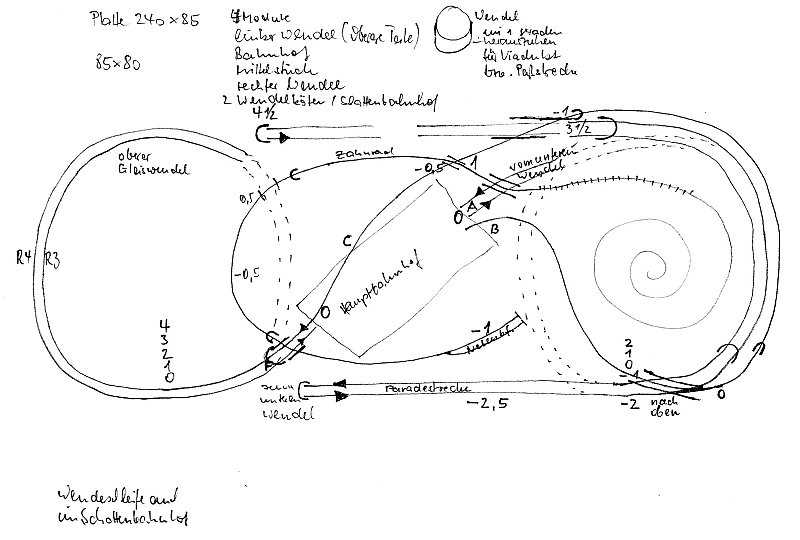 Platte 240 x 85
85x80
4 Module
linker Wendel (oberer Teil)
Bahnhof
Mittelstück
rechter Wendel
2 Wendelkästen / Schattenbahnhof
Wendel
für Viadukt
bzw. Paßstrecke
4 1/2
-1
3 1/2
oberer
Gleiswendel
Zahnrad
-0,5
1
vom unteren
Wendel
0,5
A
0
B
R4
R3
C
-0,5
Hauptbahnhof
0
-1
Nebenb.
4
3
2
1
0
2
1
0
-1
zum
unteren
Wendel
Paradestrecke
-2,5
-2
nach
oben
0
Wendeschleife auch
im Schattenbahnhof